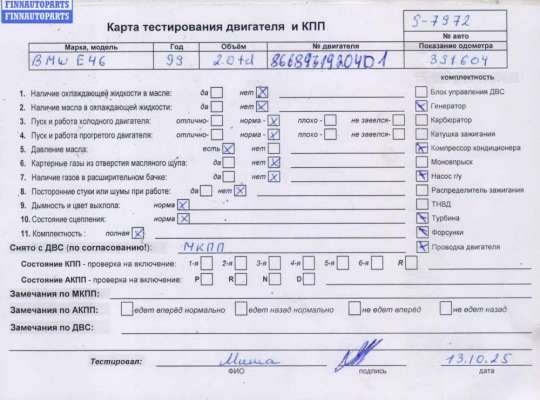 FINNAUTOPARTS
FINNAUTOPARTS
Карта тестирования двигателя и КПП
S-7972
№ авто
Марка, модель Год Объём № двигателя Показание одометра
BMW E46 99 2.0td 331604
комплектность
1. Наличие охлаждающей жидкости в масле: да нет Блок управления ДВС
2. Наличие масла в охлаждающей жидкости: да нет Генератор
3. Пуск и работа холодного двигателя: отлично- норма - плохо - не завелся- Карбюратор
4. Пуск и работа прогретого двигателя: отлично- норма - плохо - не завелся- Катушка зажигания
5. Давление масла: есть нет Компрессор кондиционера
6. Картерные газы из отверстия масляного щупа: да нет Моновпрыск
7. Наличие газов в расширительном бачке: да нет Насос г/у
8. Посторонние стуки или шумы при работе: да нет Распределитель зажигания
9. Дымность и цвет выхлопа: норма ТНВД
10. Состояние сцепления: норма Турбина
11. Комплектность : полная Форсунки
Снято с ДВС (по согласованию!): МКПП Проводка двигателя
Состояние КПП - проверка на включение: 1-я 2-я 3-я 4-я 5-я 6-я R
Состояние АКПП - проверка на включение: P R N D
Замечания по МКПП:
Замечания по АКПП: едет вперёд нормально едет назад нормально не едет вперёд не едет назад
Замечания по ДВС:
Тестировал: Миша 13.10.25
ФИО подпись дата